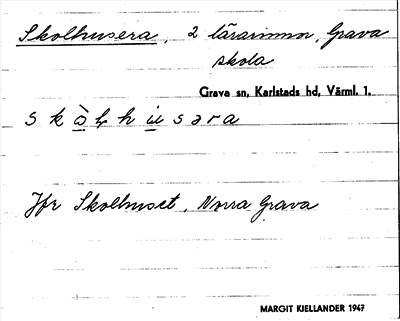 Skolhusera, 2 lärarinnor, Grava
skola
Grava sn, Karlstads hd, Värml. 1.
skò̱ɫhu̱səra
Jfr Skolhuset, Norra Grava
MARGIT KJELLANDER 1947